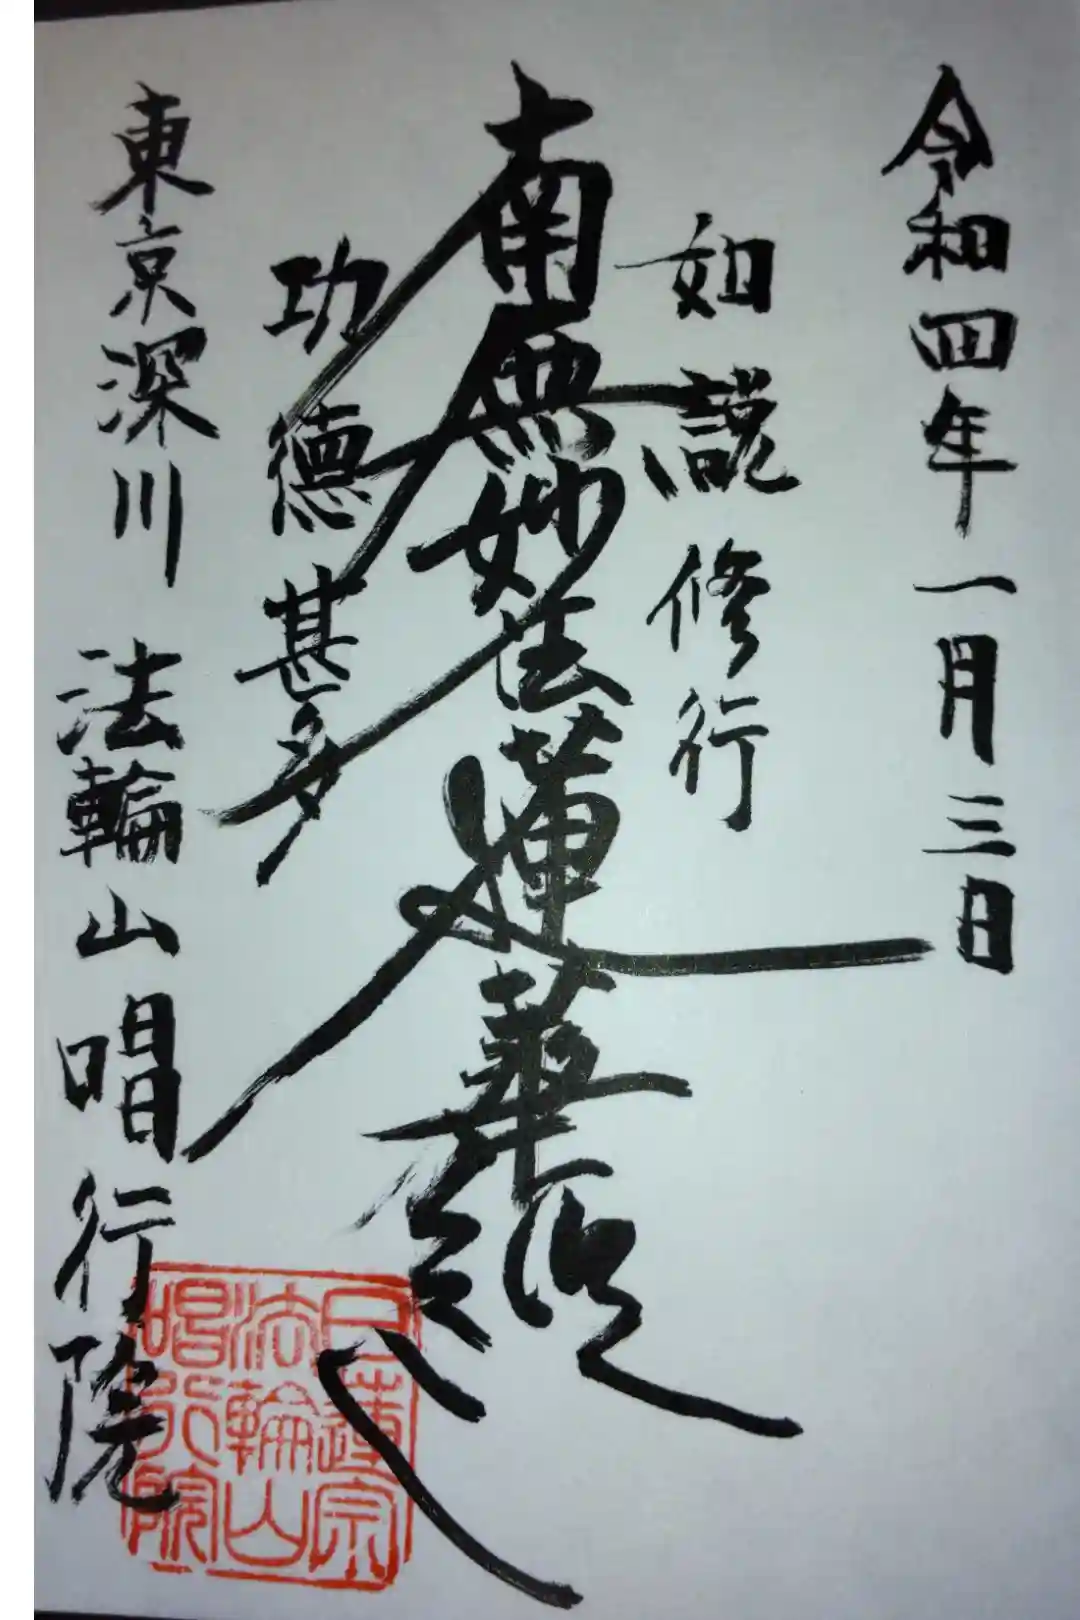 令和四年一月三日
如説修行
南無妙法蓮華経
功徳甚多
東京深川 法輪山 唱行院
日蓮宗
法輪山
唱行院